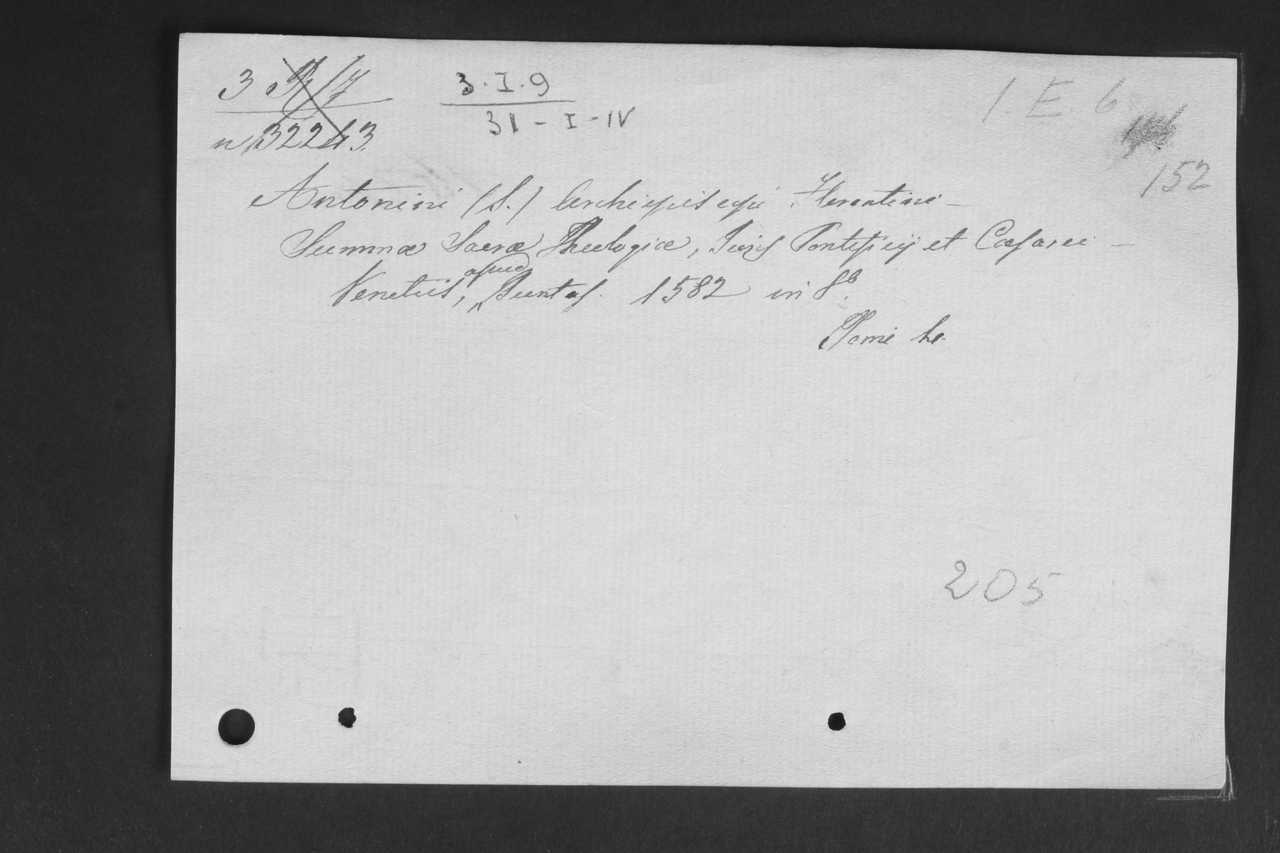 3 /7
3.I.9
1. E. 6
n. 32243
31-I-IV
152
Antonini (S.) Archiepiscopi Florentini -
Summæ Sacræ Theologiæ, Juris Pontificij et Cæsarei -
Venetiis, apud Juntas. 1582 in 8º.
Tomi
205